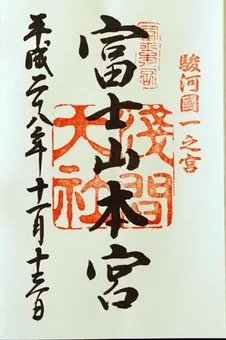 駿河國一之宮
富士山本宮
淺間大社
平成二十八年十一月十三日